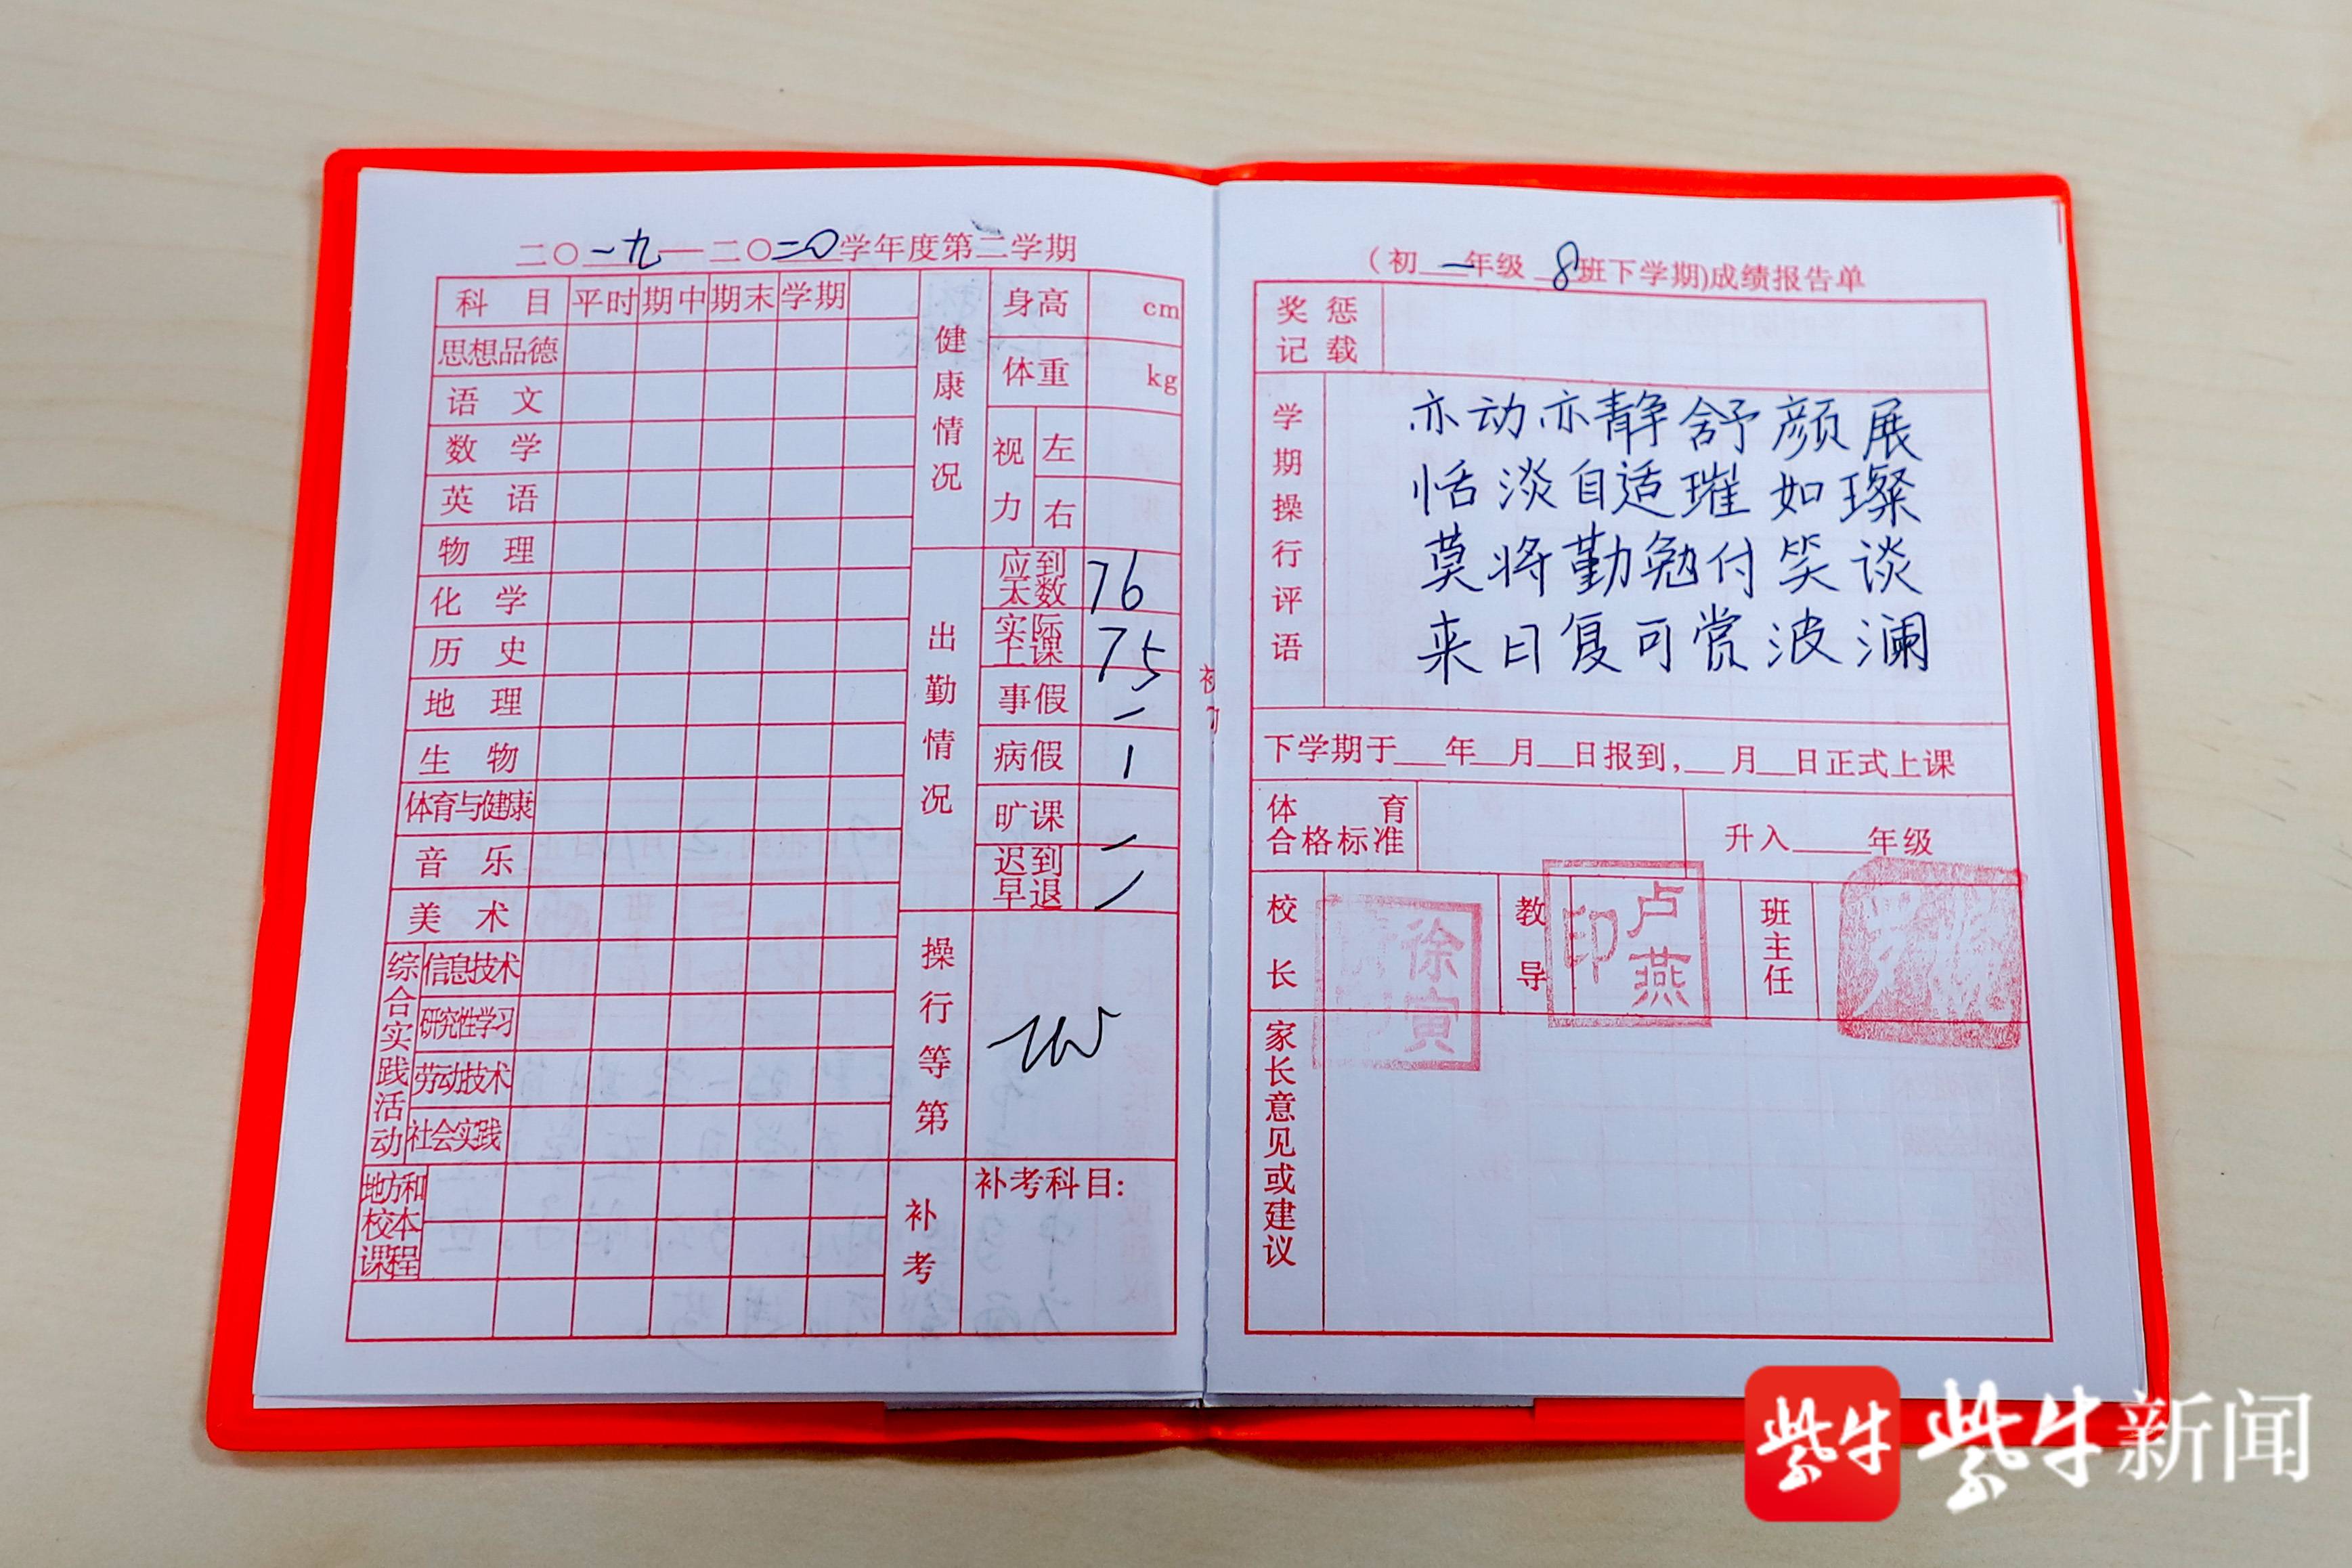 二〇一九—二〇二〇学年度第二学期
科目 平时 期中 期末 学期
思想品德
语文
数学
英语
物理
化学
历史
地理
生物
体育与健康
音乐
美术
综合实践活动
信息技术
研究性学习
劳动技术
社会实践
地方和校本课程
健康情况
身高 cm
体重 kg
视力 左
右
出勤情况
应到天数 76
实际上课 75
事假 /
病假 1
旷课 /
迟到早退 /
操行等第
补考
补考科目:
(初一年级 8班下学期)成绩报告单
奖惩记载
学期操行评语
亦动亦静舒颜展
恬淡自适璀如璨
莫将勤勉付笑谈
来日复可赏波澜
下学期于__年__月__日报到,__月__日正式上课
体育合格标准
升入____年级
校长 徐寅
教导 卢燕印
班主任
家长意见或建议
紫牛 紫牛新闻